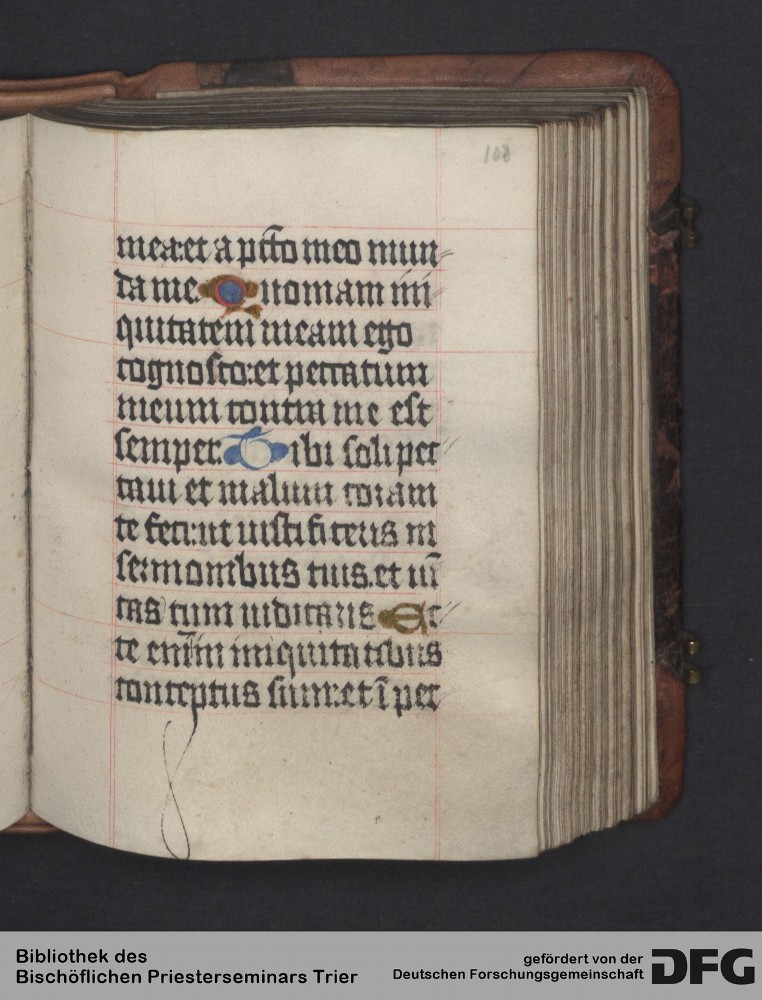 108
mea: et a pcc̄to meo mun
da me. Quoniam ini
quitatem meam ego
cognosco: et peccatum
meum contra me est
semper. Tibi soli pec
caui et malum coram
te feci: ut iustificeris in
sermonibus tuis. et ui̅
cas cum iudicaris Ec
ce enim̅ iniquitatibus
conceptus sum: et ī pec
Bibliothek des
Bischöflichen Priesterseminars Trier
gefördert von der
Deutschen Forschungsgemeinschaft
DFG